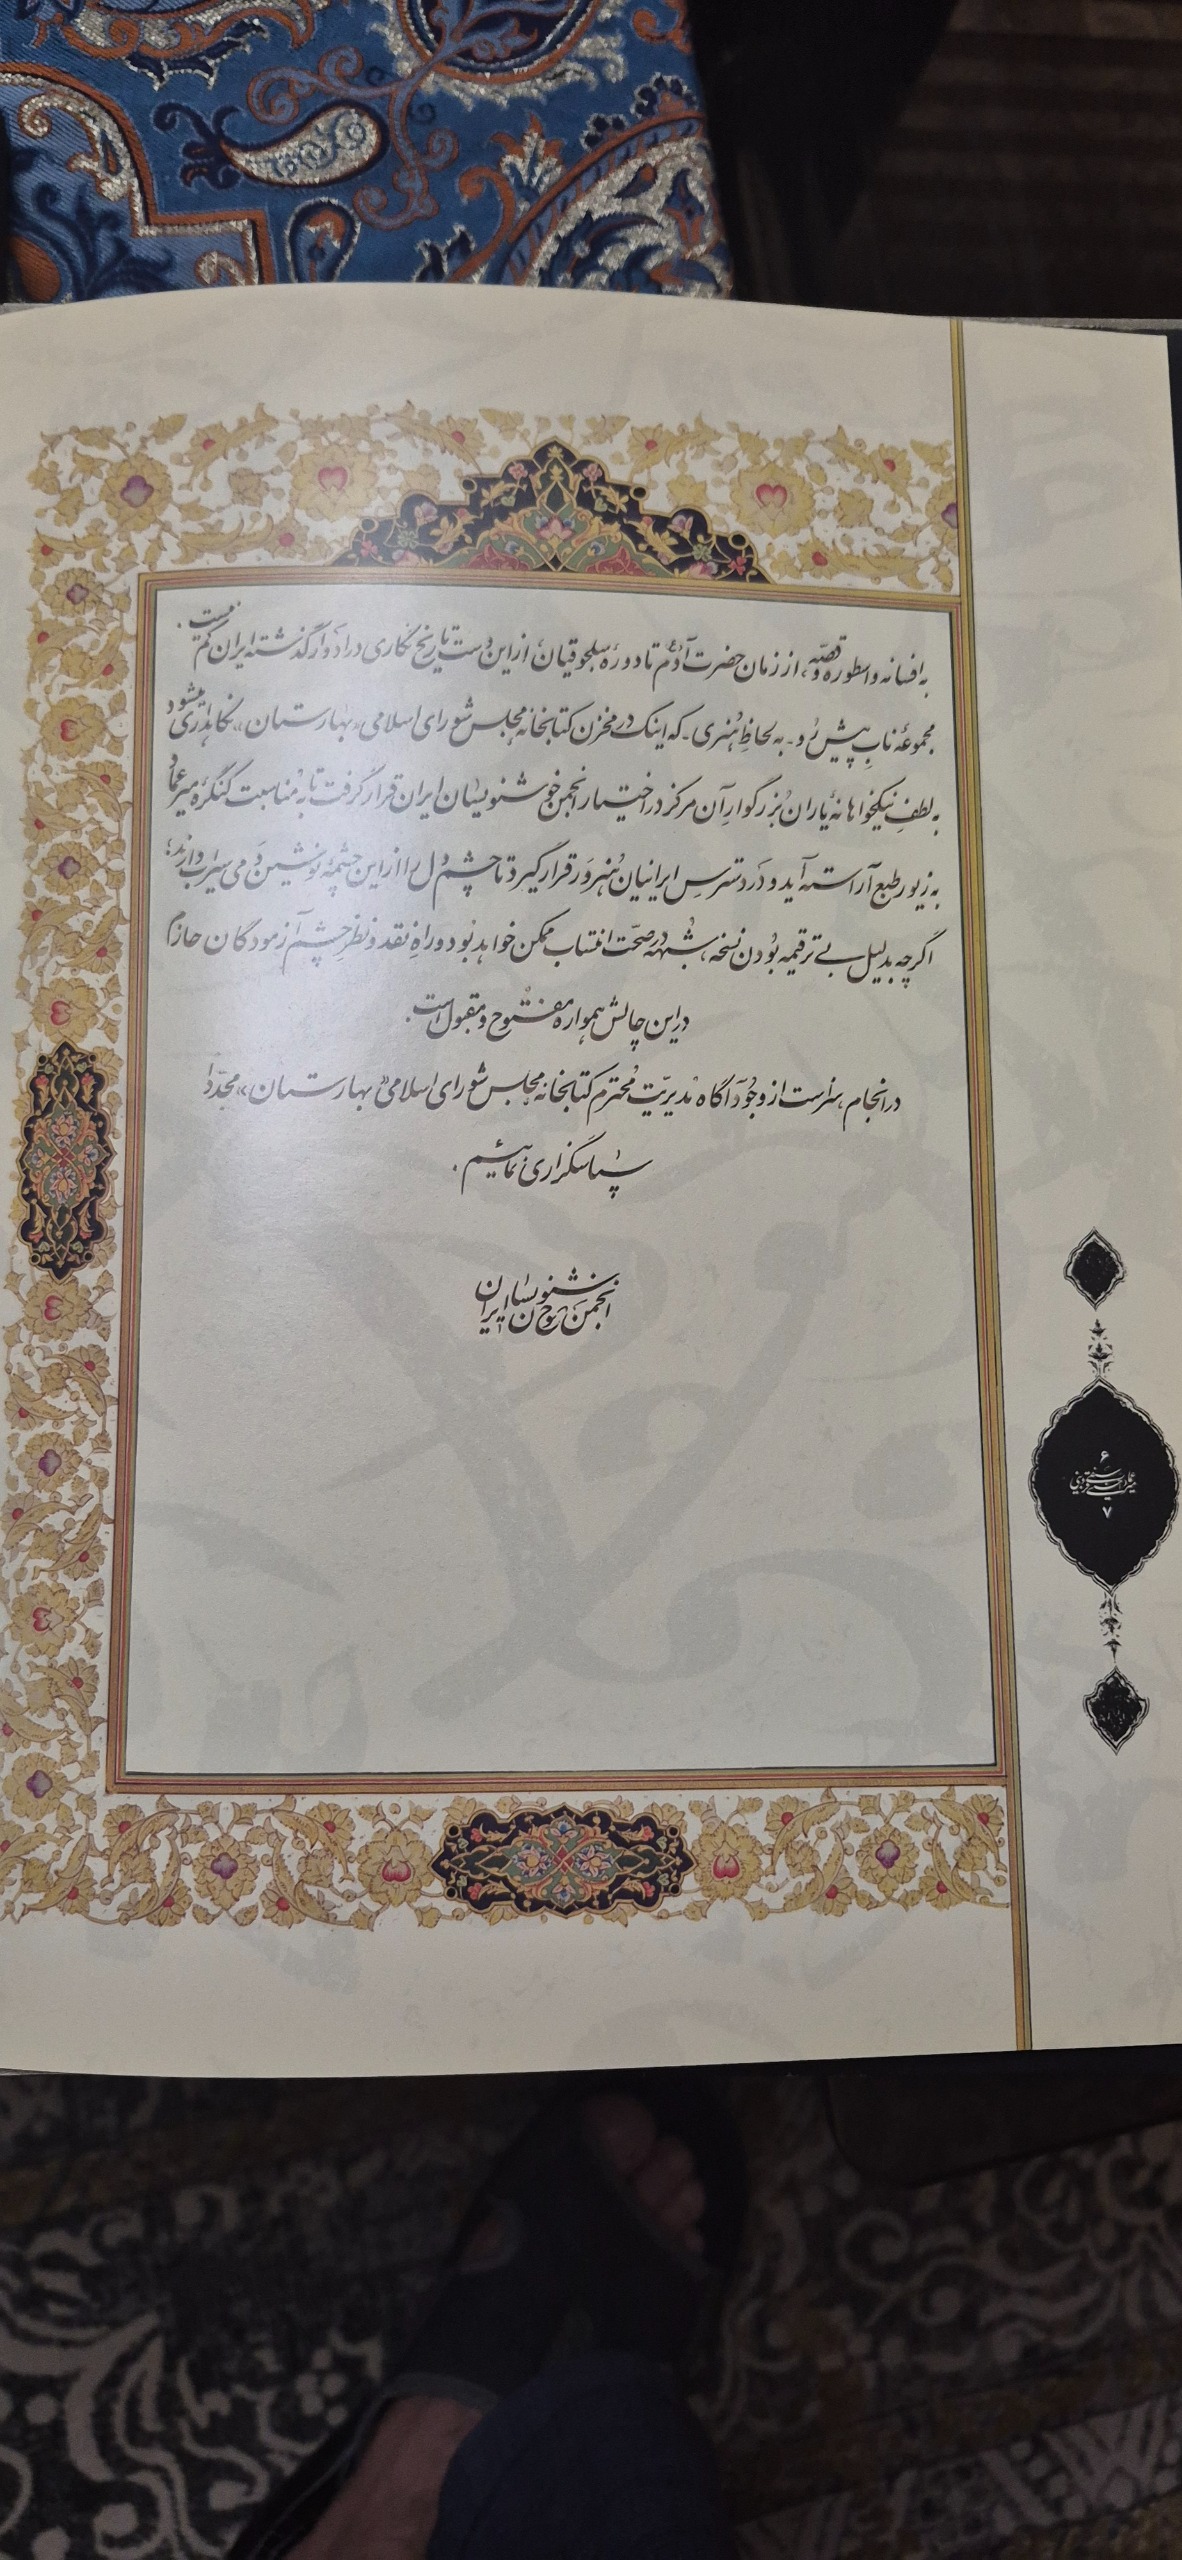 به افسانه و اسطوره و قصّه، از زمان حضرت آدم ع تا دورهٔ سلجوقیان، از این دست تاریخ نگاری در ادوار گذشته ایران کم نیست.
مجموعهٔ نابِ پیش رُو - به لحاظِ هُنری - که اینک در مخزن کتابخانه مجلس شورای اسلامی «بهارستان» نگاهداری میشود
به لطفِ نیکخواهانهٔ یاران بُزرگوارِ آن مرکز در اختیار انجمن خوشنویسان ایران قرار گرفت تا به مُناسبت کنگرهٔ میرعماد
به زیور طبع آراسته آید و دَر دسترسِ ایرانیان هُنروَر قرار گیرد تا چشم دل را از این چشمهٔ نوشین دَمی سیراب دارند؛
اگرچه بدلیل بی ترقیمه بُودن نسخه، شُبهه در صحّت انتساب ممکن خواهد بُود و راهِ نقد و نظرِ چشم آزمودگان حازم
در این چالش همواره مفتُوح و مقبول است.
در انجام، سزاست از وجُود آگاه مُدیریّت مُحترم کتابخانه مجلس شورای اسلامی «بهارستان» مجدّدا
سپاسگزاری نمائیم.
انجمن خوشنویسان ایران
۶
میرعماد حسنی قزوینی
۷